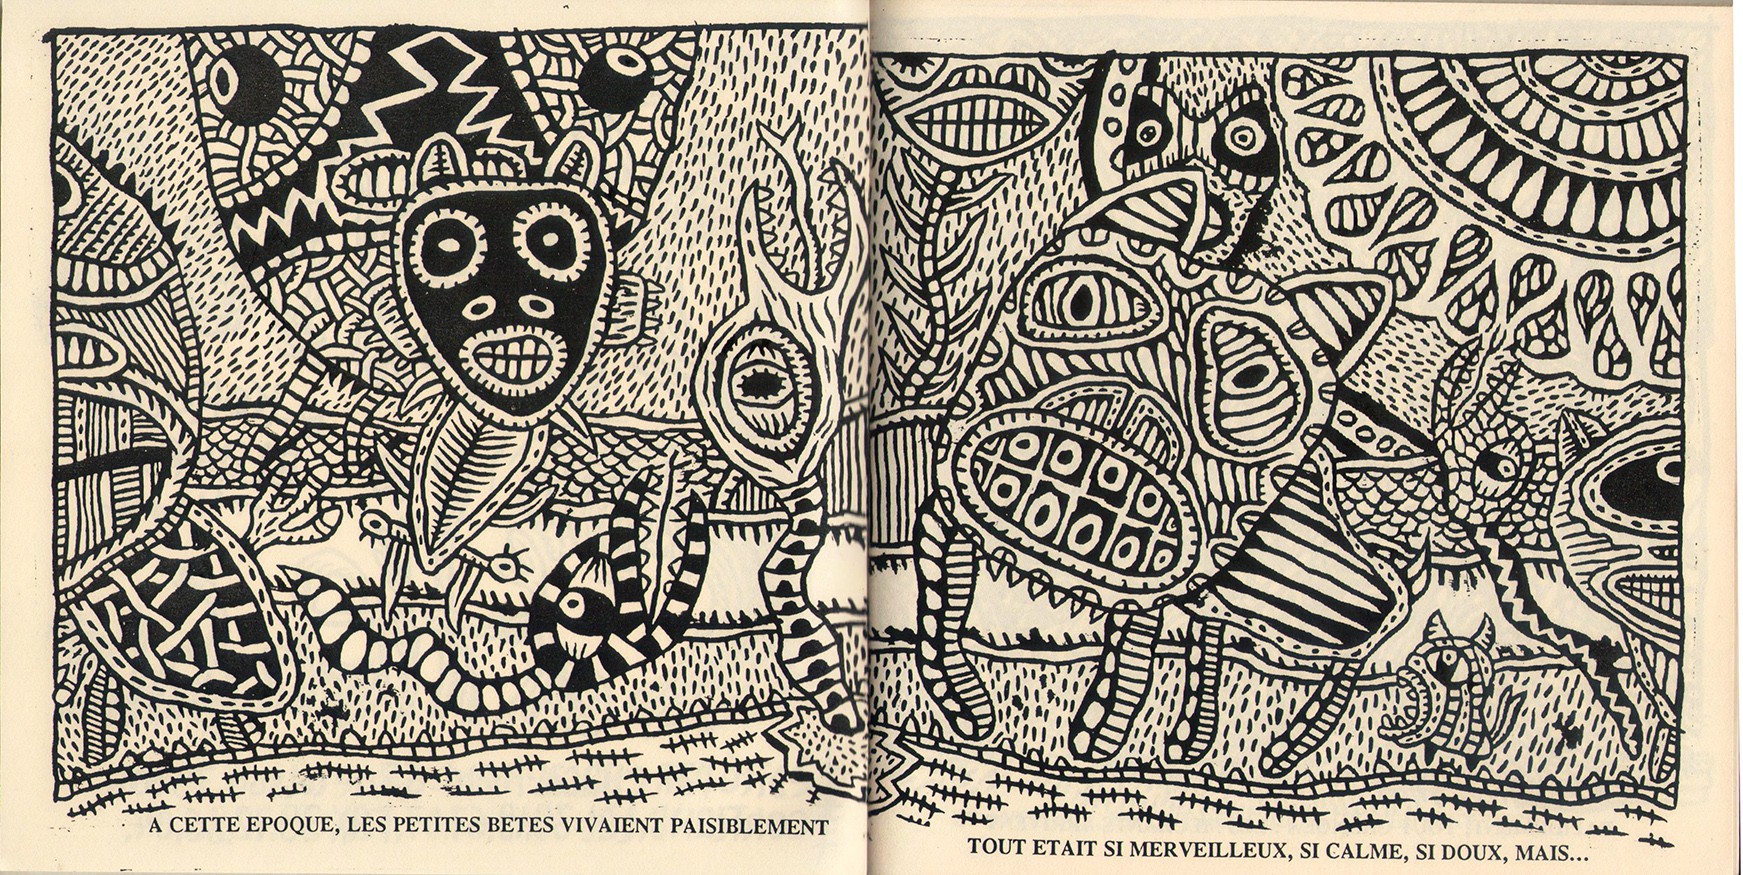 A CETTE EPOQUE, LES PETITES BETES VIVAIENT PAISIBLEMENT
TOUT ETAIT SI MERVEILLEUX, SI CALME, SI DOUX, MAIS...